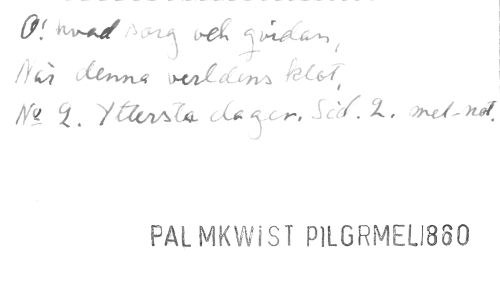 O! hvad sorg och qvidan,
När denna verldens klot,
No 2. Yttersta dagen. Sid. 2. mel-not.
PALMKWIST PILGRMEL1860